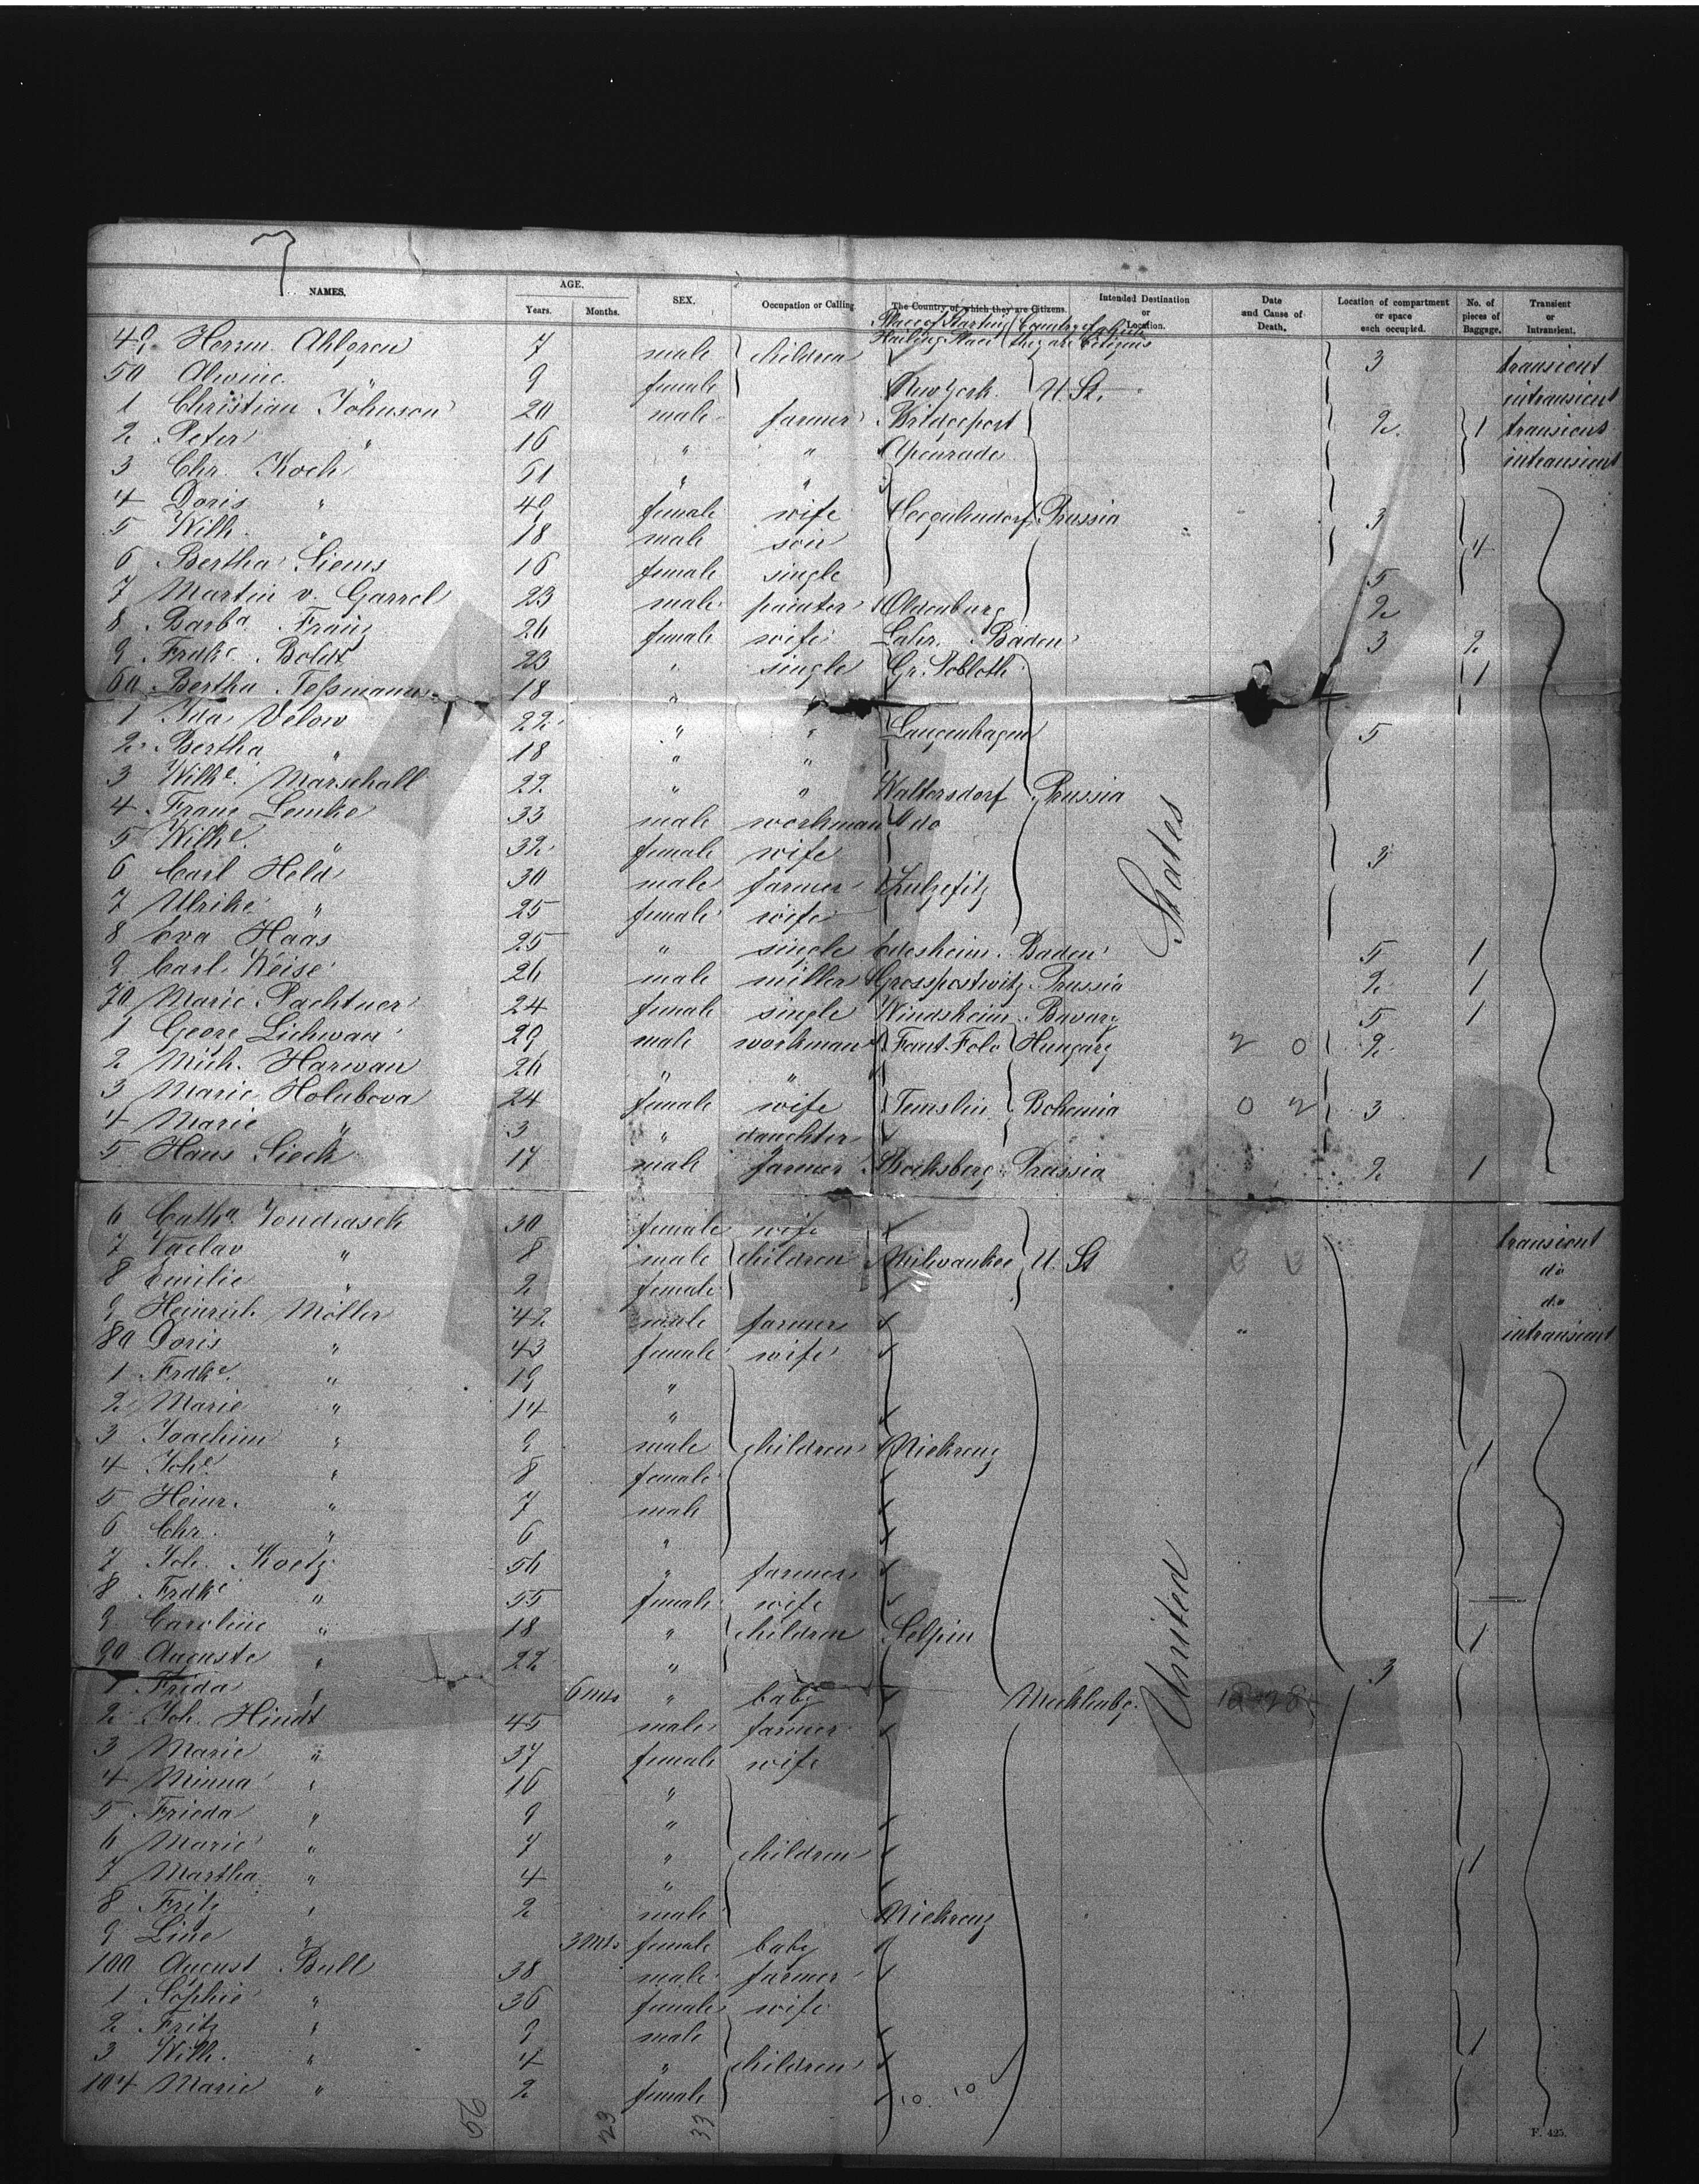 7
NAMES. AGE. Years. Months. SEX. Occupation or Calling The Country of which they are Citizens. Intended Destination or Location. Date and Cause of Death. Location of compartment or space each occupied. No. of pieces of Baggage. Transient or Intransient.
Place of Starting Country of which
Hailing Place they are Citizens
49 Herm. Ahlgren 7 male children 3 transient
50 Alwine " 9 female New York U. St. intransient
1 Christian Johnson 20 male farmer Bridgeport 2 1 transient
2 Peter " 16 " " Apenrade intransient
3 Chr. Koch 51 " "
4 Doris " 49 female wife Prussia 3
5 Wilh. " 18 male son 4
6 Bertha Siems 16 female single 5
7 Martin v. Garrel 23 male painter Oldenburg 2
8 Barba Franz 26 female wife Lahr Baden 3 2
9 Frdke Boldt 23 " single Gr. Pobloth 1
60 Bertha Teßmann 18 " "
1 Ida Velow 22 " " Langenhagen 5
2 Bertha " 18 " "
3 Wilhe. Marschall 22 " " Waltersdorf Prussia
4 Franz Lemke 33 male workman do
5 Wilhe. " 32 female wife 3
6 Carl Held 30 male farmer
7 Ulrike " 25 female wife
8 Eva Haas 25 " single Edesheim Baden 5 1
9 Carl Weise 26 male miller Grosspostwitz Prussia 2 1
70 Marie Pachtner 24 female single Windsheim Bavary 5 1
1 Geore Lichwan 29 male workman Hungary 2 0 2
2 Mich. Harwan 26 " "
3 Marie Holubova 24 female wife Temslin Bohemia 0 2 3
4 Marie " 3 " daughter
5 Hans Sieck 17 male farmer Bocksberg Prussia 2 1
6 Catha. Jondrasek 30 female wife transient
7 Vaclav " 8 male children Milwaukee U. St 0 0 do
8 Emilie " 2 female do
9 Heinrich Möller 42 male farmer " intransient
80 Doris " 43 female wife
1 Frdke. " 19 "
2 Marie " 14 "
3 Joachim " 9 male children Niekrenz 1
4 Johe " 8 female
5 Heinr. " 7 male
6 Chr. " 6 "
7 Joh. Koetz 56 " farmer
8 Frdke " 55 female wife
9 Caroline " 18 " children Selpin 1
90 Auguste " 22 " 3
1 Frida " 6 mts " baby Mecklenbg. United States
2 Joh. Hindt 45 male farmer
3 Marie " 37 female wife
4 Minna " 16 "
5 Frieda " 9 "
6 Marie " 7 " children 1
7 Martha " 4 "
8 Fritz " 2 male Niekrenz
9 Line " 3 mts female baby
100 August Bull 38 male farmer
1 Sophie " 36 female wife
2 Fritz " 9 male 1
3 Wilh. " 4 " children
104 Marie " 2 female 10 10
56 23 33
F. 425.